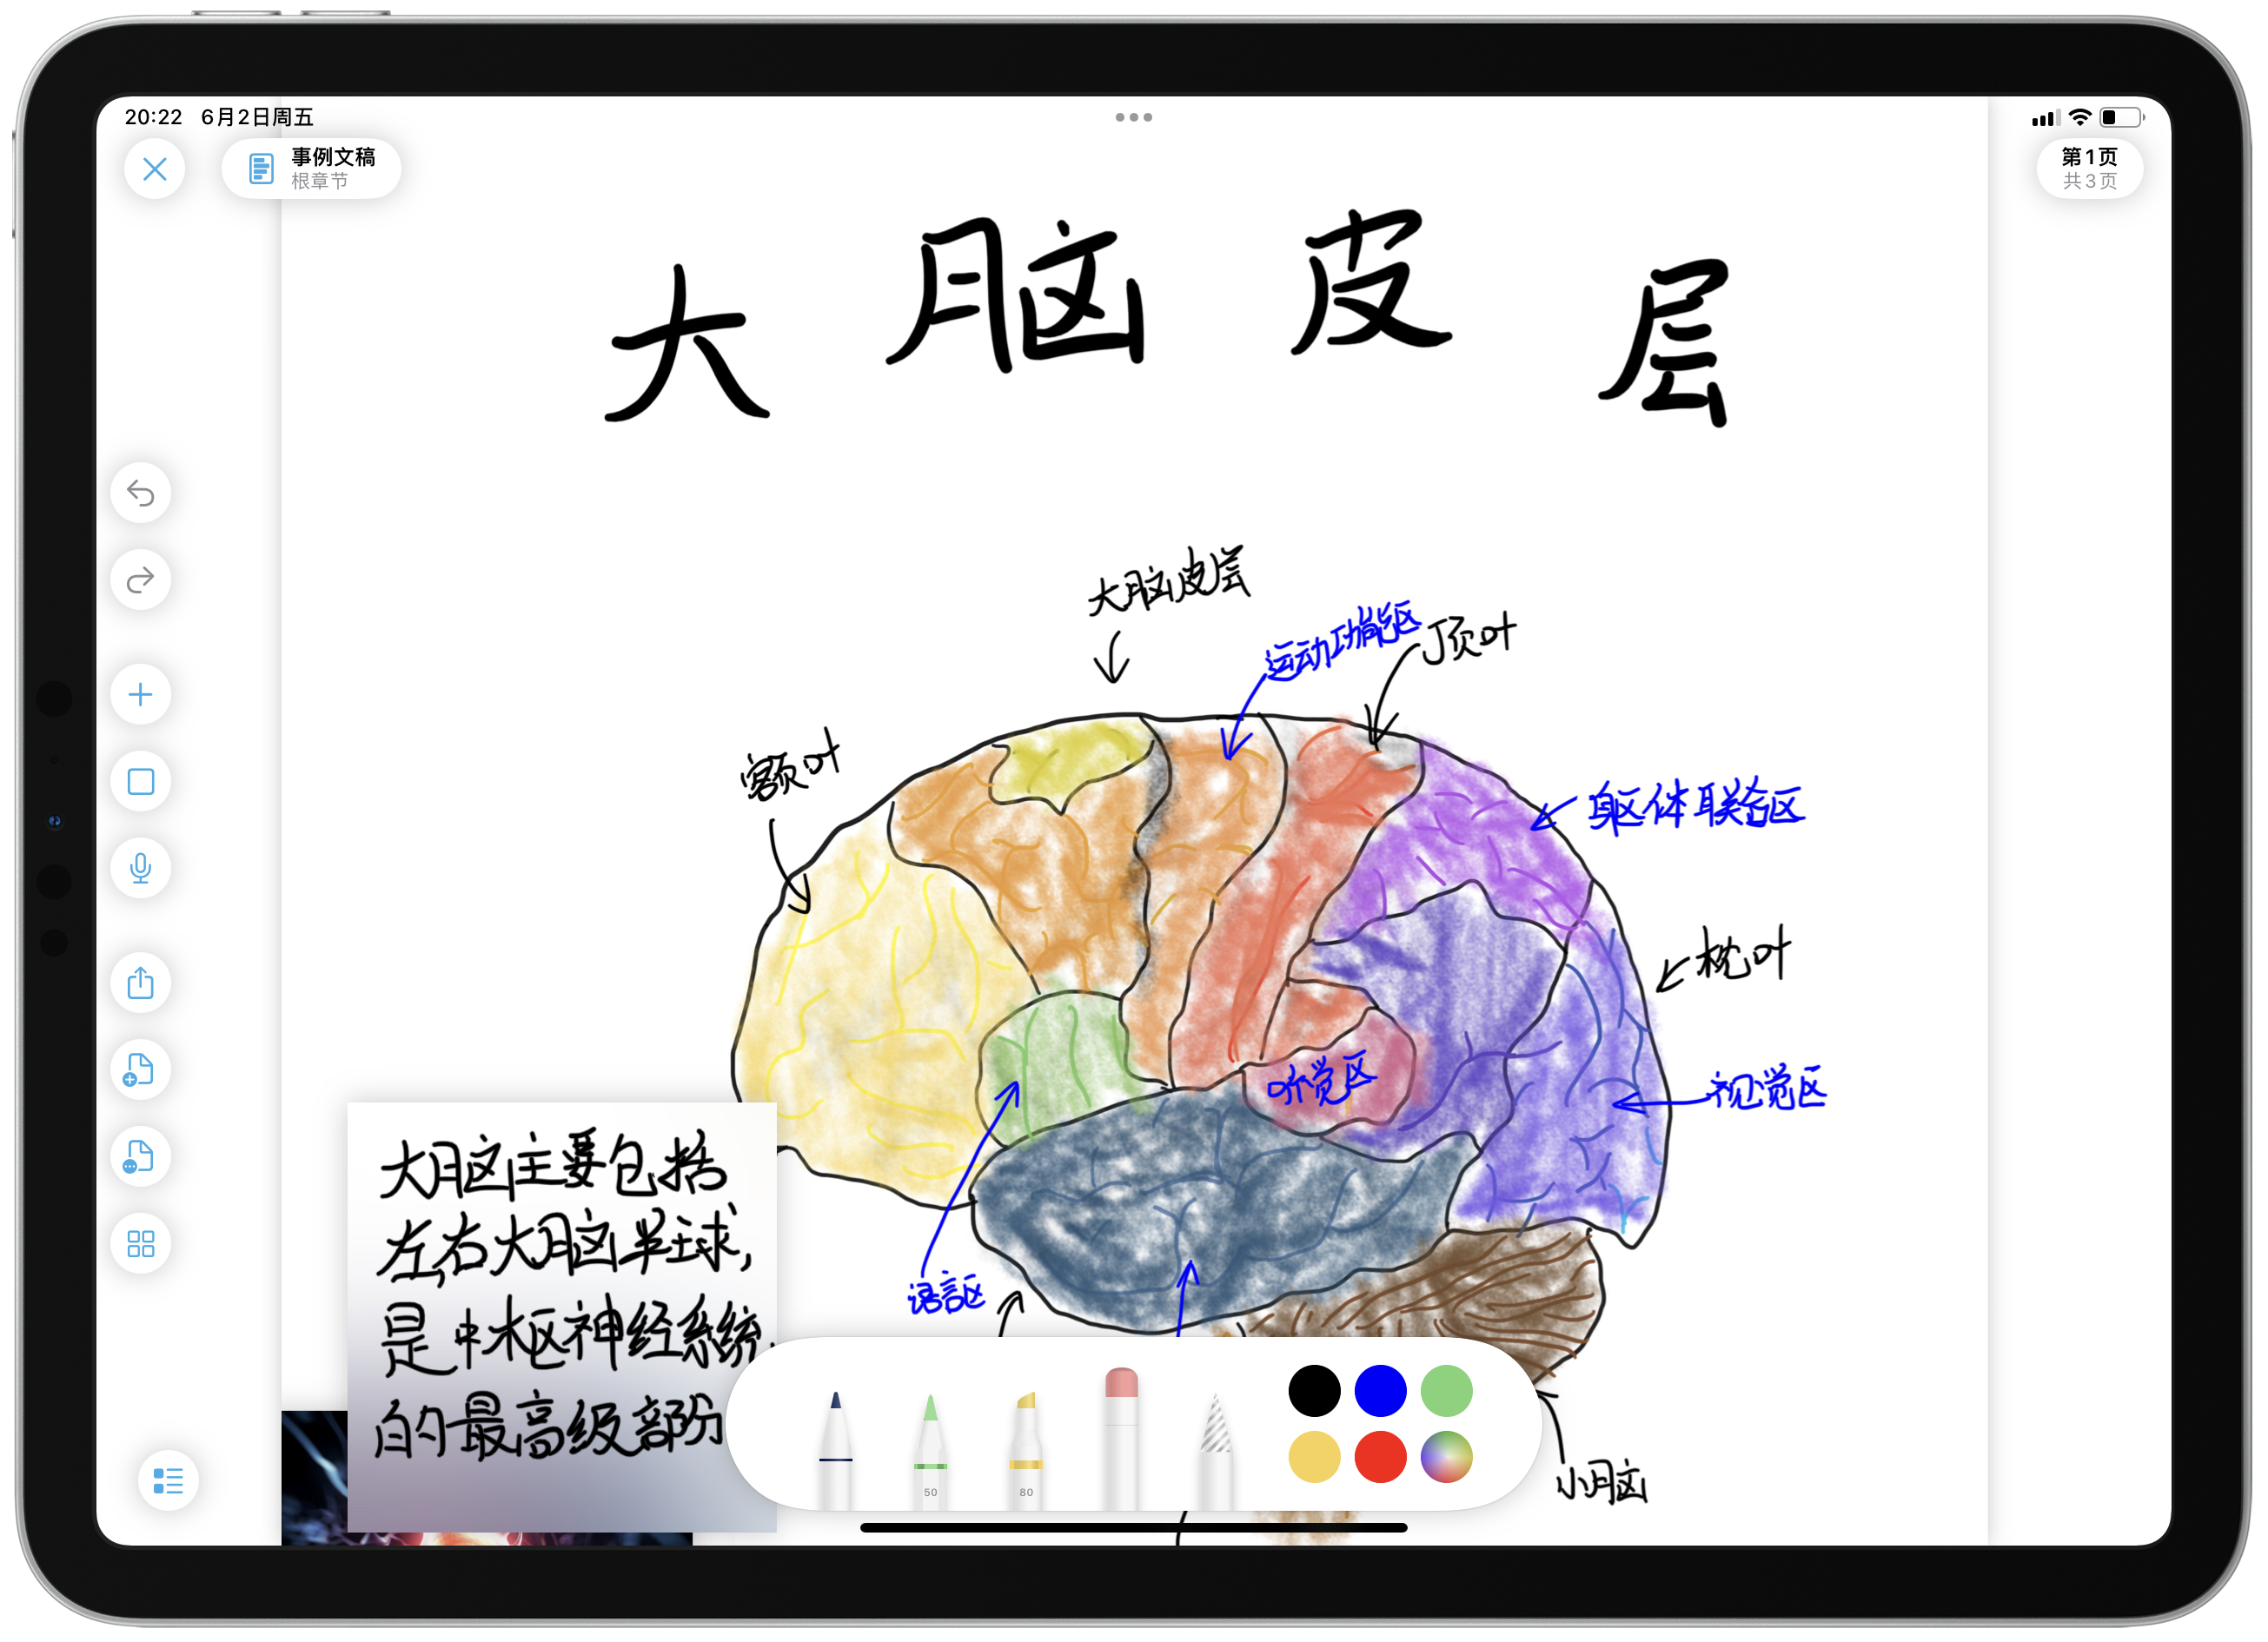 20:22 6月2日周五
事例文稿
根章节
第1页
共3页
大脑皮层
大脑皮层
运动功能区
顶叶
额叶
躯体联合区
枕叶
听觉区
视觉区
大脑主要包括
左右大脑半球,
是中枢神经系统
的最高级部分
语言区
50
80
小脑